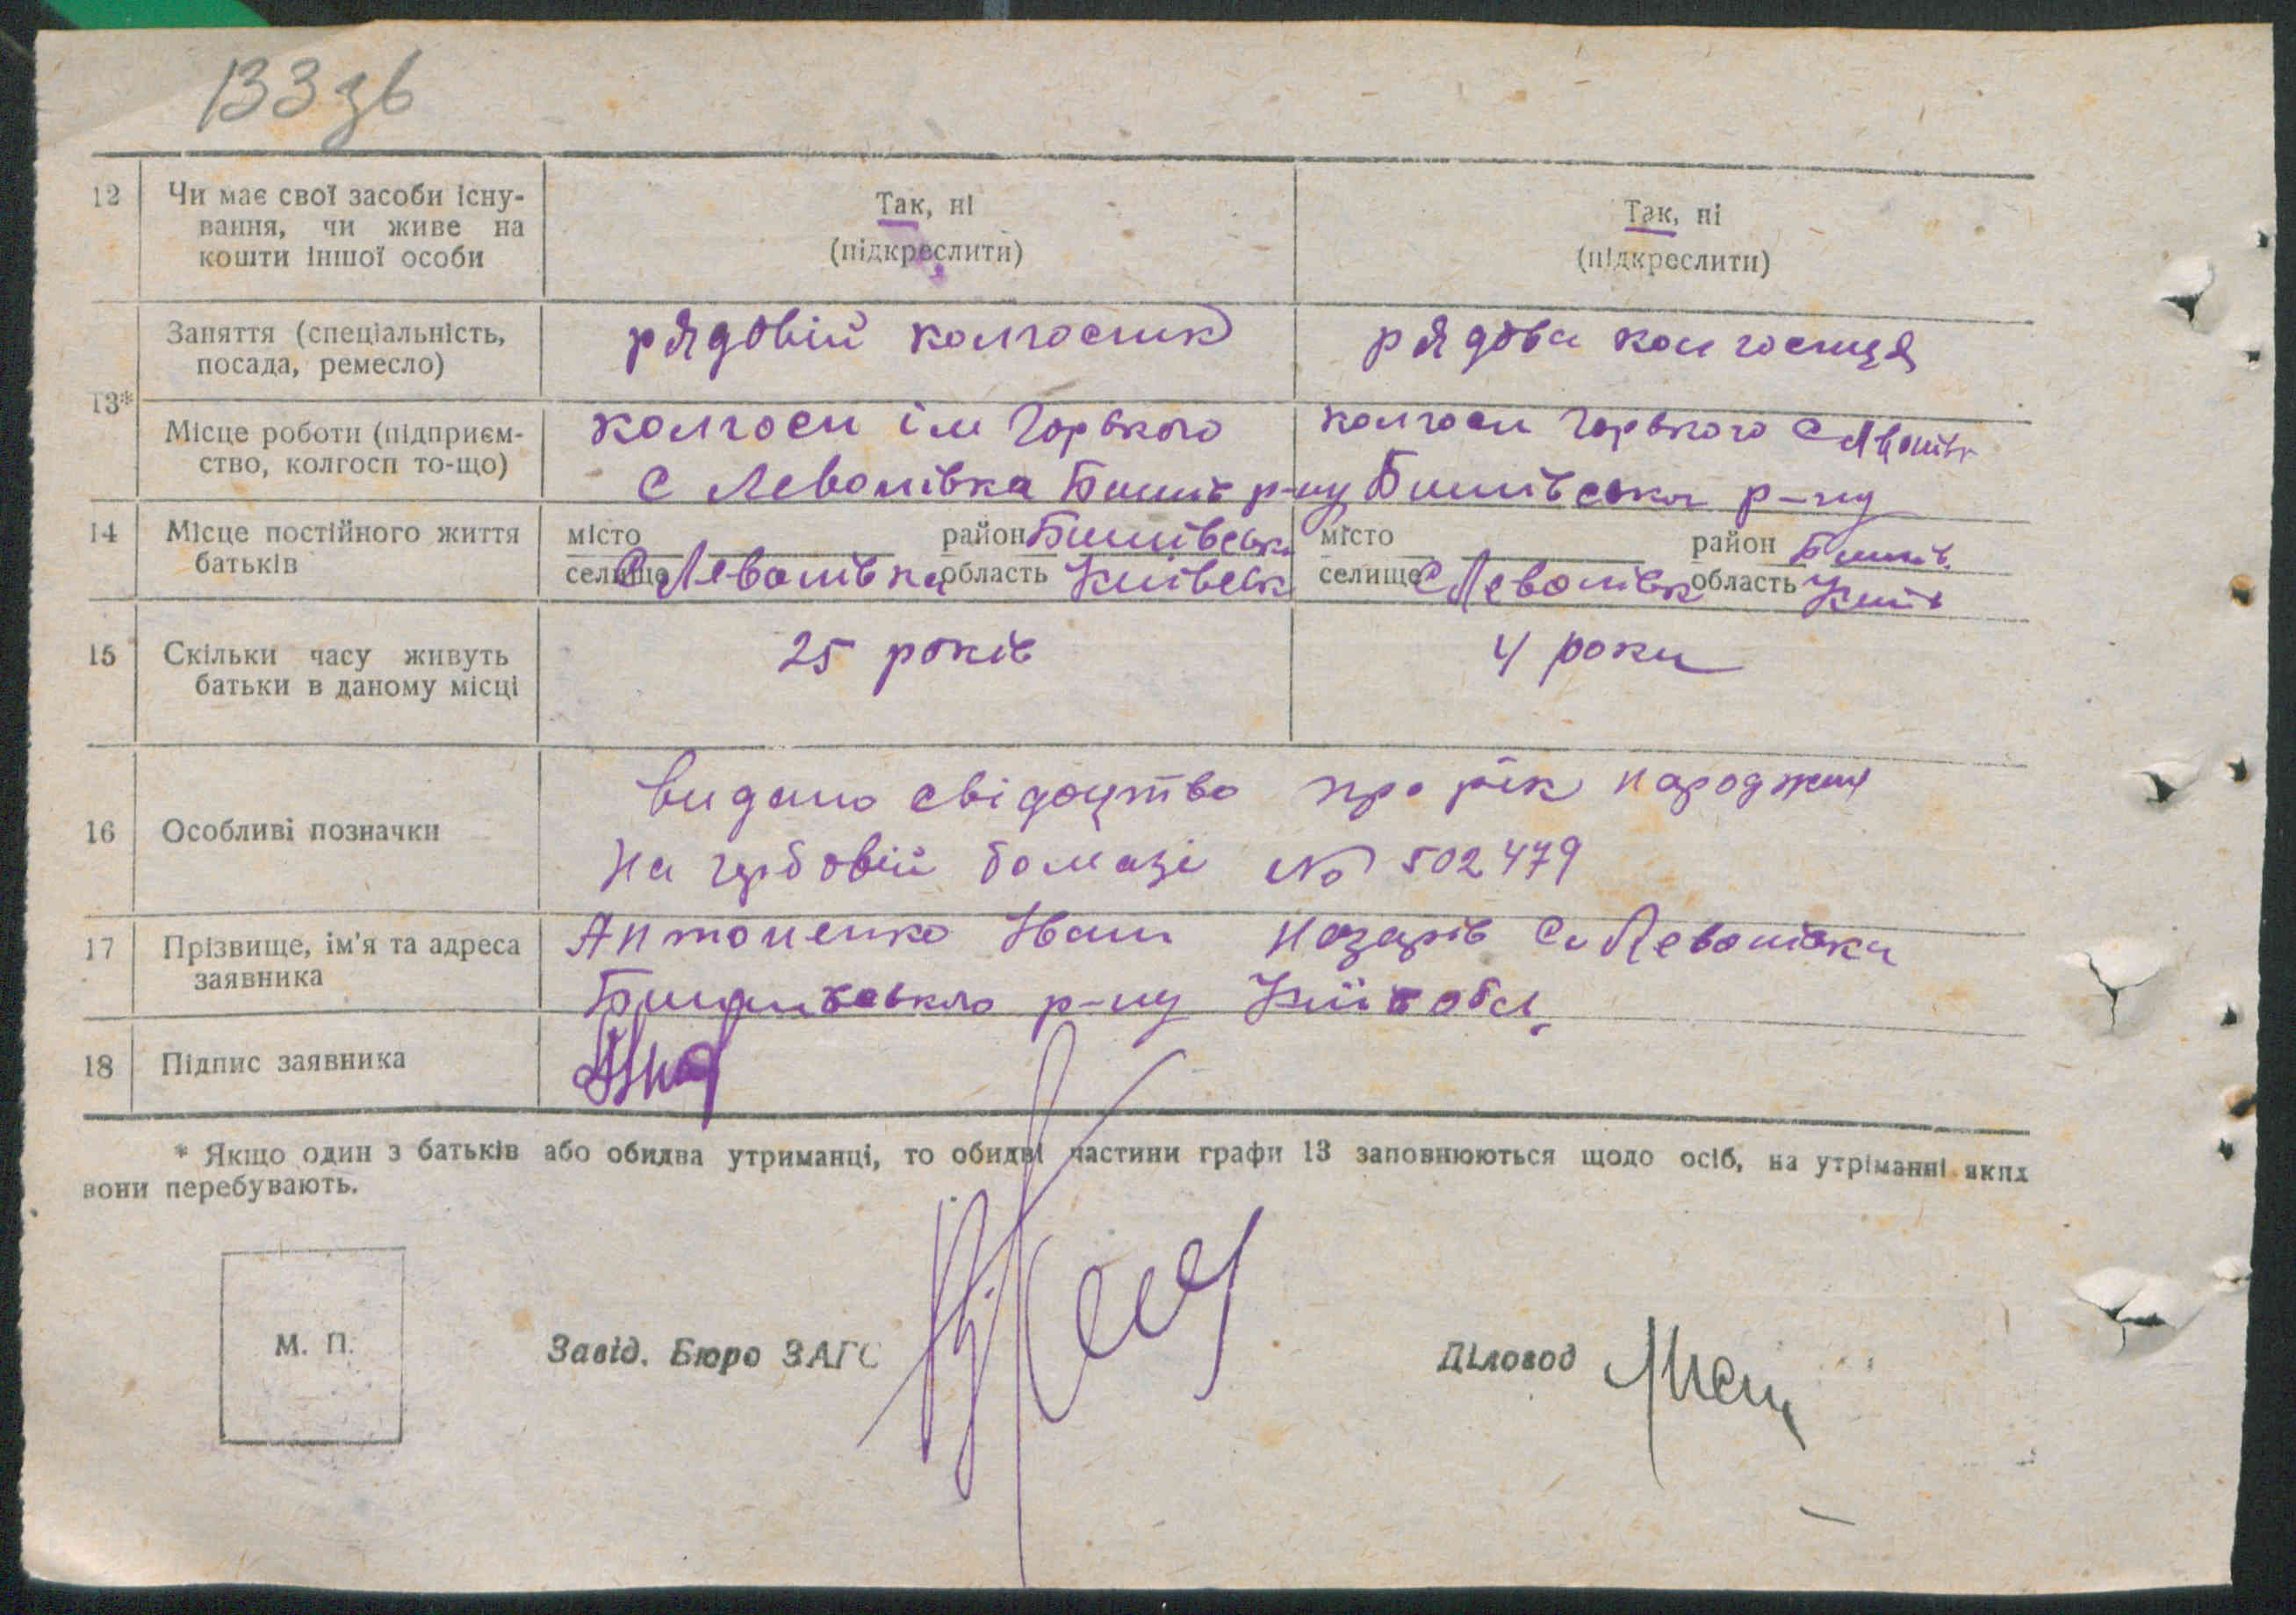 133 зв
12 Чи має свої засоби існу-
вання, чи живе на
кошти іншої особи
Так, ні
(підкреслити)
Так, ні
(підкреслити)
13*
Заняття (спеціальність,
посада, ремесло)
рядовій колгоспник
рядова колгоспниця
Місце роботи (підприєм-
ство, колгосп то-що)
колгосп ім Горького
с Левонівка Бишів р-ну
колгосп Горького с
Бишівська р-ну
14 Місце постійного життя
батьків
місто район Бишівськ
селище с Левонівка область Київськ
місто район Бишів.
селище с Левонівк область Київ
15 Скільки часу живуть
батьки в даному місці
25 років
4 роки
16 Особливі позначки
видано свідоцтво про рік народження
На гербовій бомазі № 502479
17 Прізвище, ім'я та адреса
заявника
Антоненко Іван Назарів с. Левонівка
Бишівського р-ну Київ обл.
18 Підпис заявника
* Якщо один з батьків або обидва утриманці, то обидві частини графи 13 заповнюються щодо осіб, на утріманні яких
вони перебувають.
М. П.
Завід. Бюро ЗАГС
Діловод